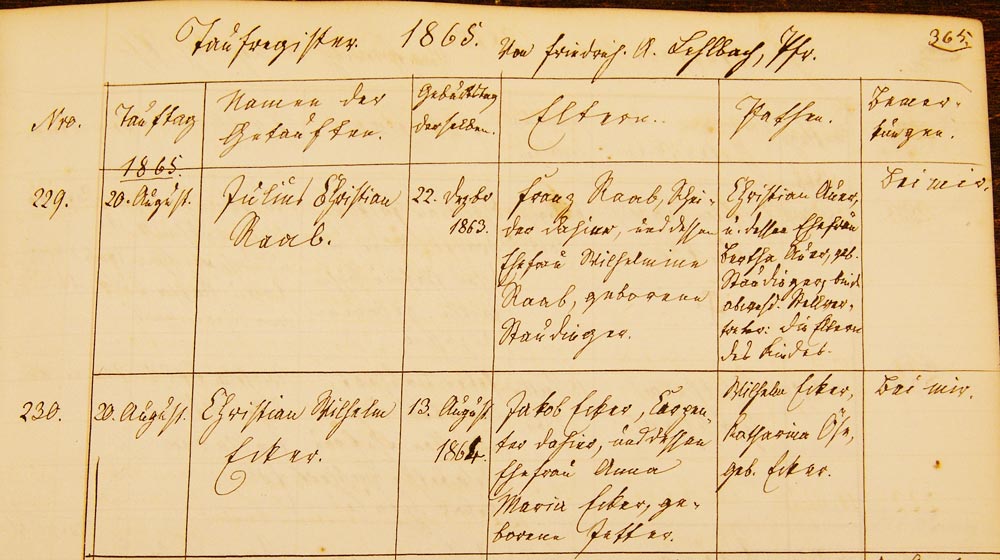 Taufregister. 1865. Von Friedrich A. Lehlbach, Pfr. 365.
Nro.
Tauftag
1865.
Namen der
Getauften.
Geburtstag
derselben.
Eltern.
Pathen.
Bemer-
kungen.
229.
20. August.
Julius Christian
Raab.
22. Dezbr
1863.
Franz Raab, Schnei-
der dahier, und dessen
Ehefrau Wilhelmine
Raab, geborene
Staudinger.
Christian Auer,
u. dessen Ehefrau
Bertha Auer, geb.
Staudinger, beide
abwesd. Stellver-
treter: die Eltern
des Kindes.
Bei mir.
230.
20. August.
Christian Wilhelm
Ecker.
13. August
1864.
Jakob Ecker, Carpen-
ter dahier, und dessen
Ehefrau Anna
Maria Ecker, ge-
borene
Wilhelm Ecker,
Katharina
geb. Ecker.
Bei mir.